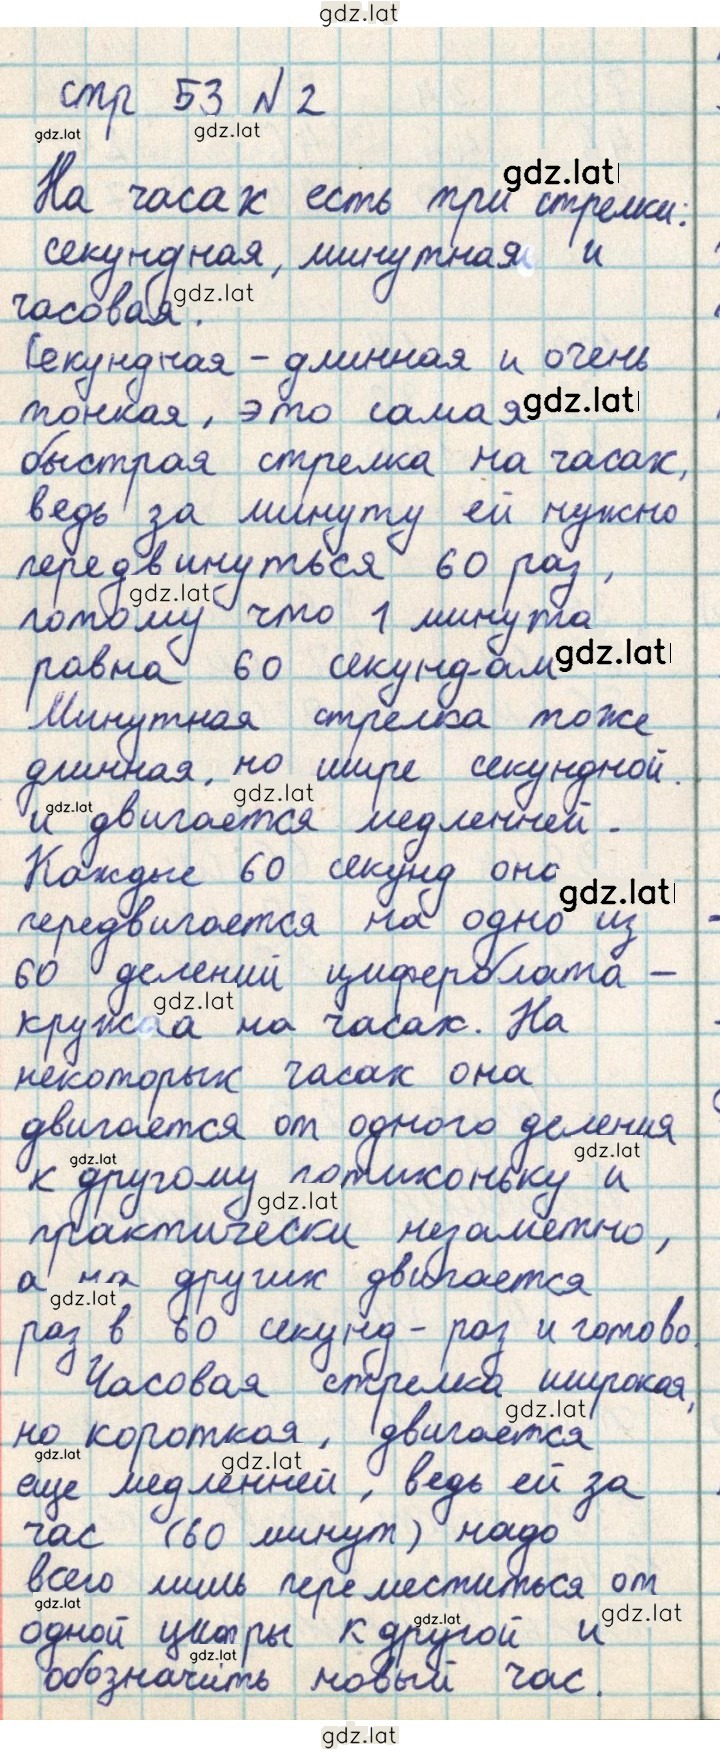 gdz.lat
стр 53 № 2
gdz.lat gdz.lat
gdz.lat
На часах есть три стрелки:
секундная, минутная и
gdz.lat
часовая.
Секундная - длинная и очень
тонкая, это самая gdz.lat
быстрая стрелка на часах,
ведь за минуту ей нужно
передвинуться 60 раз,
gdz.lat
потому что 1 минута
равна 60 секундам gdz.lat
Минутная стрелка тоже
длинная, но шире секундной
gdz.lat gdz.lat
и двигается медленней.
Каждые 60 секунд она
gdz.lat
передвигается на одно из
60 делений циферблата -
gdz.lat
кружка на часах. На
некоторых часах она
двигается от одного деления
gdz.lat gdz.lat
к другому потихоньку и
gdz.lat
практически незаметно,
а на других двигается
gdz.lat
раз в 60 секунд - раз и готово.
Часовая стрелка широкая,
gdz.lat
но короткая, двигается
gdz.lat gdz.lat
еще медленней, ведь ей за
час (60 минут) надо
всего лишь переместиться от
gdz.lat gdz.lat gdz.lat
одной цифры к другой и
gdz.lat
обозначить новый час.
gdz.lat